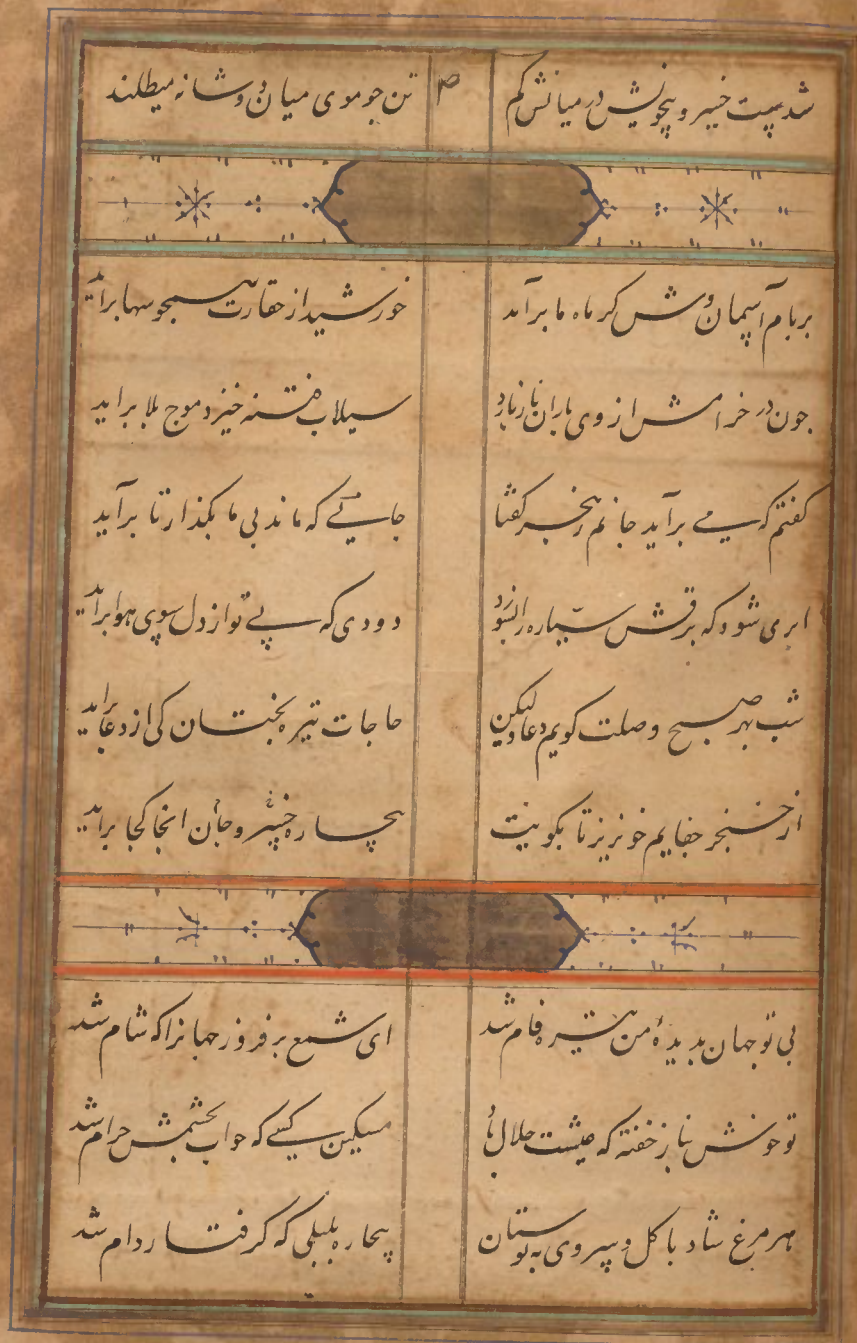 شد پست خسرو بیخویش در میانش کم م تن جو موی میان و شانه میطلند
بربام آسمان وش کر ماه ما برآمد خورشید از حقارت همجو سها براید
جون در خرامش از وی باران ناز بارد سیلاب فتنه خیزد موج بلا براید
کفتم که می برآید جانم ز هجر کفتا جایی که ماند بی ما بکذار تا برآید
ابری شود که برقش سیاره را بسوزد دودی که بی تو از دل سوی هوا براید
شب بهر صبح وصلت کویم دعا ولیکن حاجات تیره بختان کی از دعا براید
از خنجر جفایم خونریز تا بکویت بیچاره خسرو جان انجا کجا براید
بی تو جهان بدیدهٔ من تیره فام شد ای شمع بر فروز جهانرا که شام شد
تو خوش بناز خفته که عیشت حلال باد مسکین کسی که خواب بچشمش حرام شد
هر مرغ شاد با کل و سروی به بوستان بیچاره بلبلی که کرفتار دام شد